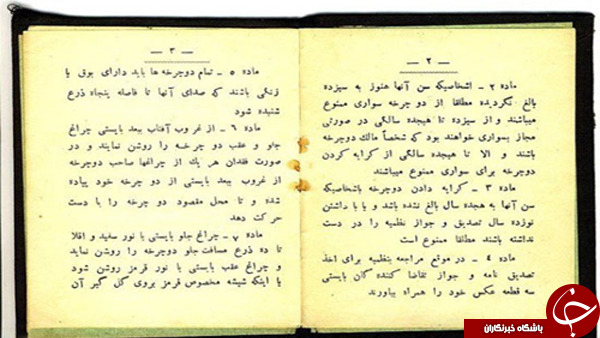 — ۲ —
ماده ۲ ـ اشخاصیکه سن آنها هنوز به سیزده
بالغ نگردیده مطلقا از دو چرخه سواری ممنوع
میباشند و از سیزده تا هیجده سالگی در صورتی
مجاز بسواری خواهند بود که شخصاً مالك دوچرخه
باشند و الا تا هیجده سالگی از کرایه کردن
دوچرخه برای سواری ممنوع میباشند
ماده ۳ ـ کرایه دادن دوچرخه باشخاصیکه
سن آنها به هجده سال بالغ نشده باشد و یا با داشتن
نوزده سال تصدیق و جواز نظمیه را در دست
نداشته باشند مطلقا ممنوع است
ماده ٤ ـ در موقع مراجعه بنظمیه برای اخذ
تصدیق نامه و جواز تقاضا کننده گان بایستی
سه قطعه عکس خود را همراه بیاورند
— ۳ —
ماده ٥ ـ تمام دوچرخه ها باید دارای بوق یا
زنگی باشند که صدای آنها تا فاصله پنجاه ذرع
شنیده شود
ماده ٦ ـ از غروب آفتاب ببعد بایستی چراغ
جلو و عقب دو چرخه را روشن نمایند و در
صورت فقدان هر یك از چراغها صاحب دوچرخه
از غروب ببعد بایستی از دو چرخه خود پیاده
شده و تا محل مقصود دو چرخه را با دست
حرکت دهد
ماده ۷ ـ چراغ جلو بایستی با نور سفید و اقلا
تا ده ذرع مسافت جلو دوچرخه را روشن نماید
و چراغ عقب بایستی با نور قرمز روشن شود
یا اینکه شیشه مخصوص قرمز بروی گل گیر آن
باشگاه خبرنگاران